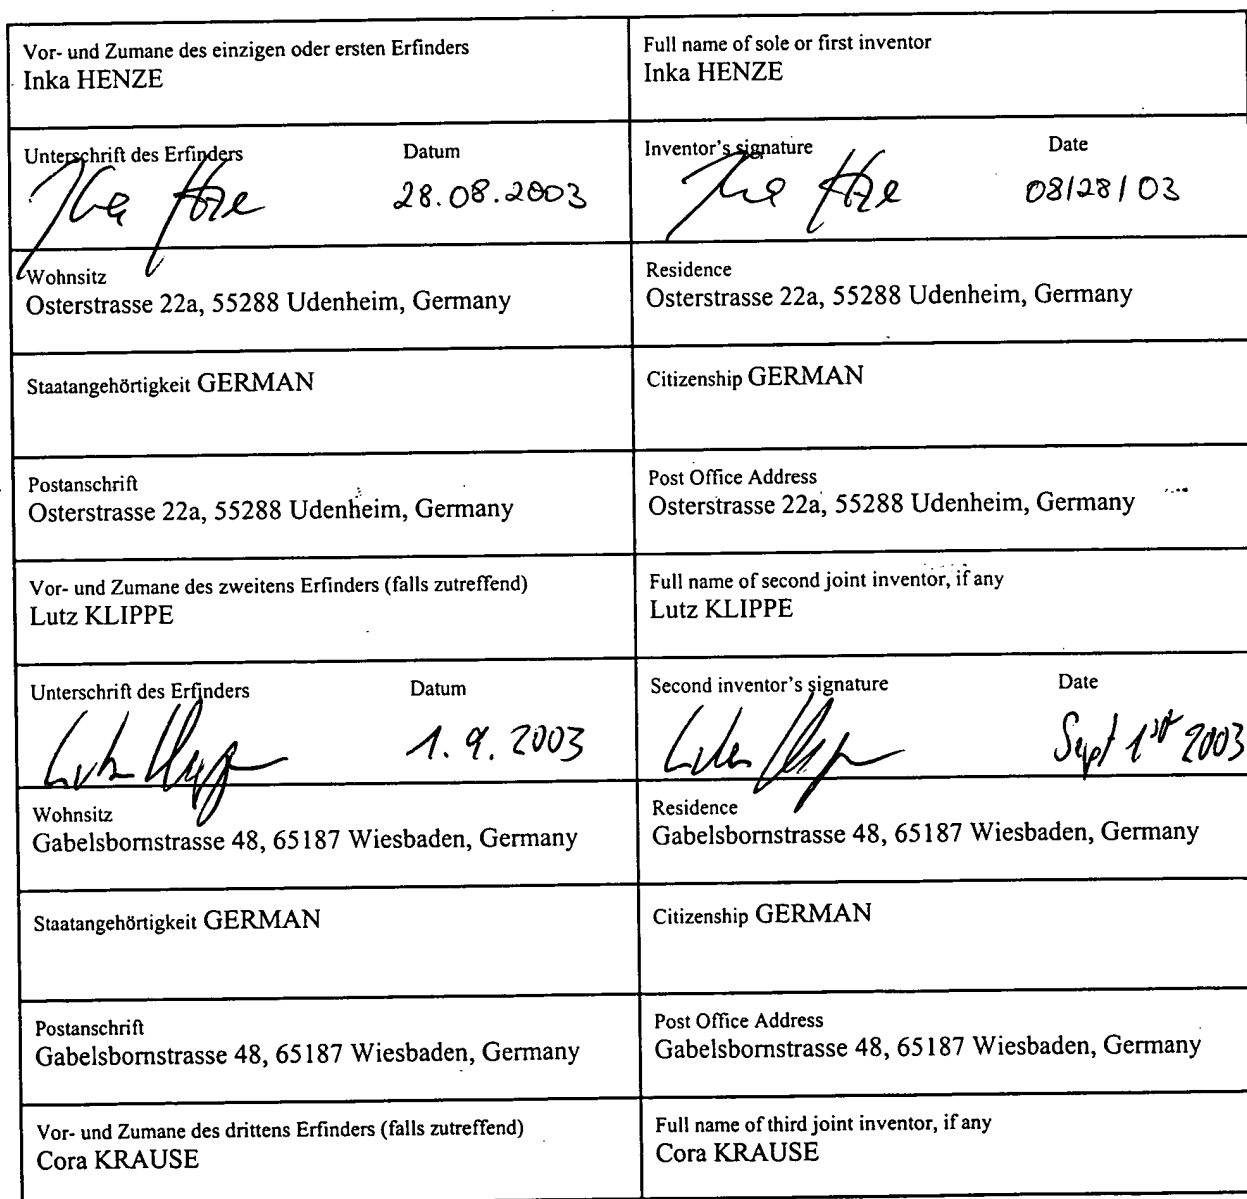 Vor- und Zumane des einzigen oder ersten Erfinders
Inka HENZE
Full name of sole or first inventor
Inka HENZE
Unterschrift des Erfinders Datum
28.08.2003
Inventor's signature Date
08/28/03
Wohnsitz
Osterstrasse 22a, 55288 Udenheim, Germany
Residence
Osterstrasse 22a, 55288 Udenheim, Germany
Staatangehörtigkeit GERMAN
Citizenship GERMAN
Postanschrift
Osterstrasse 22a, 55288 Udenheim, Germany
Post Office Address
Osterstrasse 22a, 55288 Udenheim, Germany
Vor- und Zumane des zweitens Erfinders (falls zutreffend)
Lutz KLIPPE
Full name of second joint inventor, if any
Lutz KLIPPE
Unterschrift des Erfinders Datum
1.9.2003
Second inventor's signature Date
Sept 1st 2003
Wohnsitz
Gabelsbornstrasse 48, 65187 Wiesbaden, Germany
Residence
Gabelsbornstrasse 48, 65187 Wiesbaden, Germany
Staatangehörtigkeit GERMAN
Citizenship GERMAN
Postanschrift
Gabelsbornstrasse 48, 65187 Wiesbaden, Germany
Post Office Address
Gabelsbornstrasse 48, 65187 Wiesbaden, Germany
Vor- und Zumane des drittens Erfinders (falls zutreffend)
Cora KRAUSE
Full name of third joint inventor, if any
Cora KRAUSE